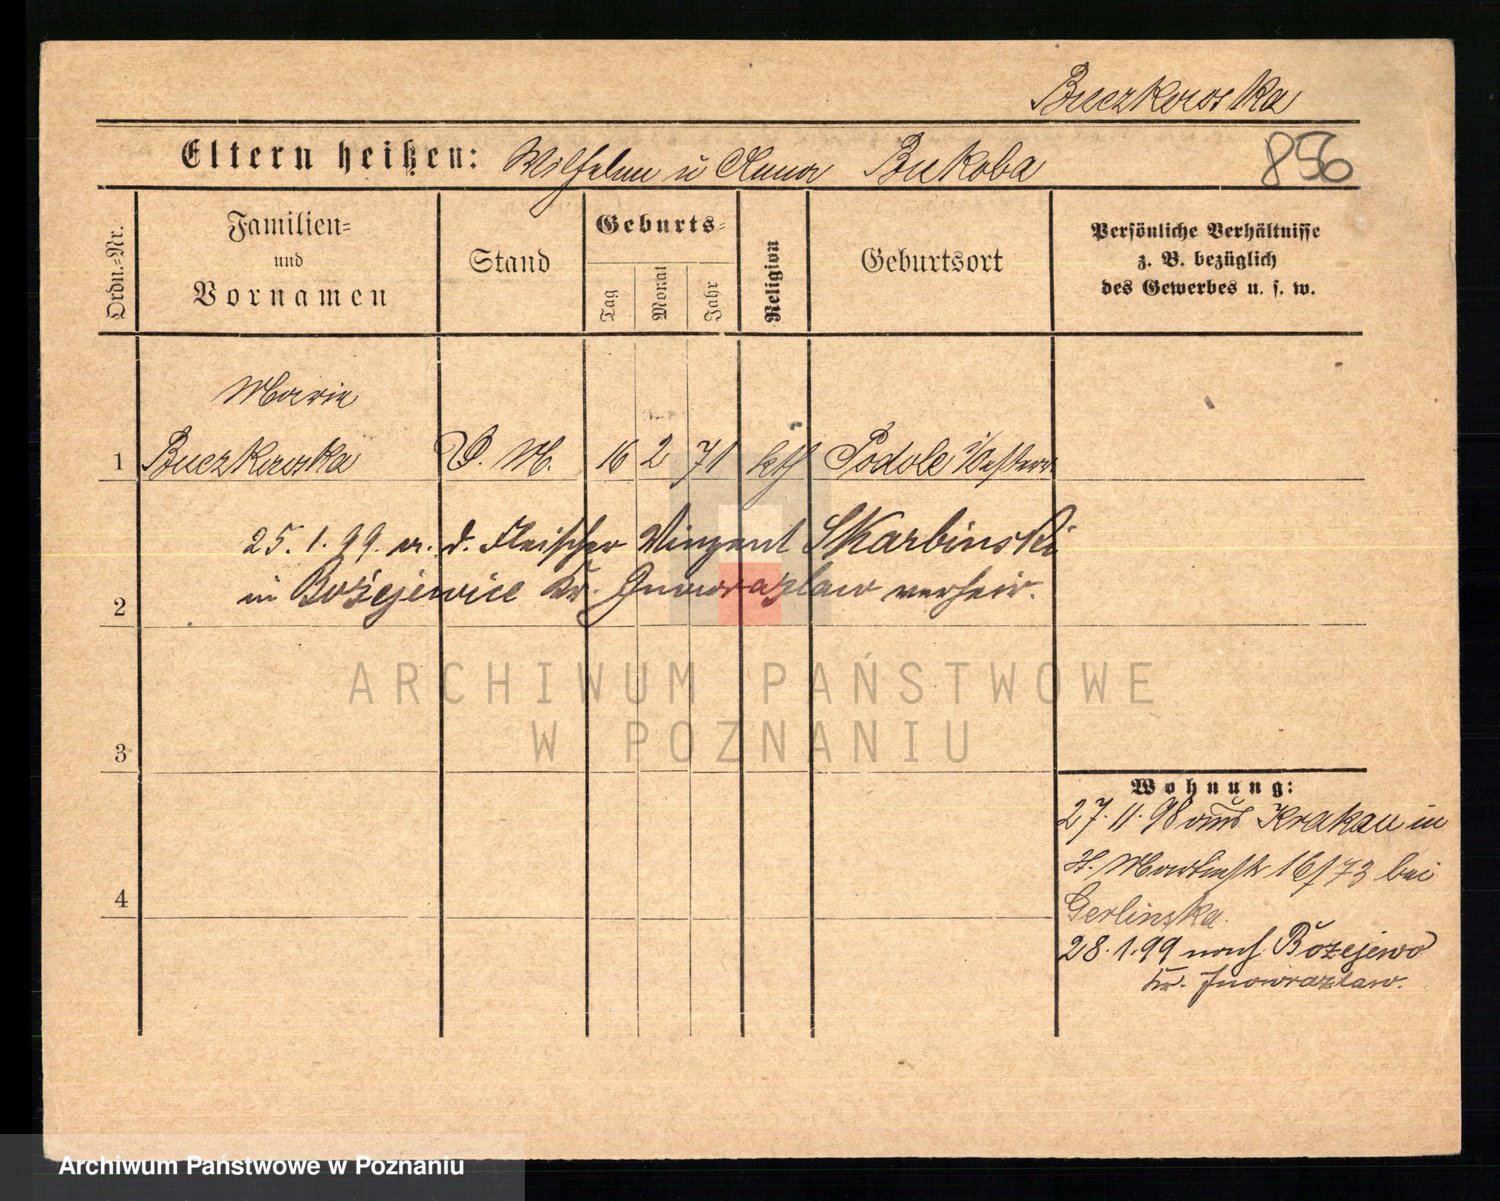 Buczkowska
Eltern heißen: Wilhelm u Anna Bukoba
856
Ordn.-Nr.
Familien-
und
Vornamen
Stand
Geburts-
Tag
Monat
Jahr
Religion
Geburtsort
Persönliche Verhältnisse
z. B. bezüglich
des Gewerbes u. s. w.
Marie
1 Buczkowska D. M. 16 2 71 kth Podole
25. 1. 99. m. d. Fleischer Vinzent Skarbinski
2 in Bożejewice Kr. Inowrazlaw verheir.
ARCHIWUM PAŃSTWOWE
W POZNANIU
3
Wohnung:
27. 11. 98 aus Krakau in
St. Martinstr 16/73 bei
4
Gerlinska.
28. 1. 99 nach Bożejewo
Kr. Inowrazlaw.
Archiwum Państwowe w Poznaniu